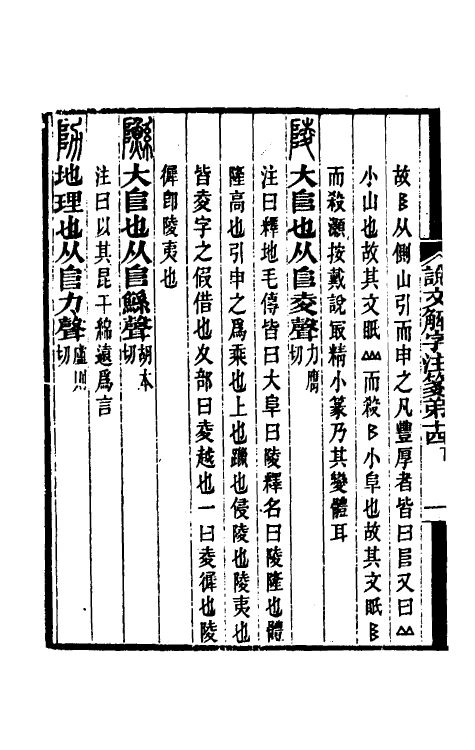 說文解字注箋第十四下 一
故𨸏从側山引而申之凡豐厚者皆曰𨸏又曰山
小山也故其文眂山而殺𠂤小阜也故其文眂𨸏
而殺灝按戴說最精小篆乃其變體耳
陵大𨸏也从𨸏夌聲力膺切
注曰釋地毛傳皆曰大阜曰陵釋名曰陵隆也體
隆高也引申之爲乘也上也躐也侵陵也陵夷也
皆夌字之假借也夊部曰夌越也一曰夌徲也陵
徲卽陵夷也
𨽿大𨸏也从𨸏鯀聲胡本切
注曰以其昆干綿遠爲言
阞地理也从𨸏力聲盧則切